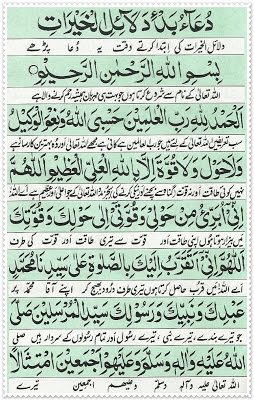 دُعَاء بَدء دَلَائِلُ الْخَيْرَات
دلائل الخیرات کی ابتدا کرتے وقت یہ دُعا پڑھے
بِسْمِ اللهِ الرَّحْمٰنِ الرَّحِيْمِ
اللہ تعالیٰ کے نام سے شروع کرتا ہوں جو بہت ہی مہربان ہمیشہ رحم کرنے والا ہے
اَلْحَمْدُ لِلّٰهِ رَبِّ الْعٰلَمِيْنَ حَسْبِىَ اللهُ وَنِعْمَ الْوَكِيْلُ
سب تعریفیں اللہ تعالیٰ کے لئے ہیں جو رب العالمین ہے کافی ہے مجھے اللہ تعالیٰ اور وہ بہترین کارساز ہے
وَلَاحَوْلَ وَلَا قُوَّةَ اِلَّا بِاللهِ الْعَلِىِّ الْعَظِيْمِ اَللّٰهُمَّ
اِنِّىْ اَبْرَئُ مِنْ حَوْلِىْ وَقُوَّتِىْ اِلٰى حَوْلِكَ وَقُوَّتِكَ
میں بیزار ہوتا ہوں اپنی طاقت اور قوت سے تیری طاقت اور قوت کی طرف
اَللّٰهُمَّ اِنِّىْ اَتَقَرَّبُ اِلَيْكَ بِالصَّلٰوةِ عَلٰى سَيِّدِنَا مُحَمَّدٍ
اے اللہ میں قرب حاصل کرتا ہوں تیری طرف درود بھیج کر اپنے آقا محمد پر
عَبْدِكَ وَنَبِيِّكَ وَرَسُوْلِكَ سَيِّدِ الْمُرْسَلِيْنَ صَلَّى
جو تیرے بندے، تیرے نبی، تیرے رسول اور تمام رسولوں کے سردار ہیں صلی
اللهُ عَلَيْهِ وَاٰلِهٖ وَسَلَّمَ وَعَلَيْهِمْ اَجْمَعِيْنَ اِمْتِثَالًا
اللہ تعالیٰ علیہ وآلہ وسلم وعلیھم اجمعین تیرے